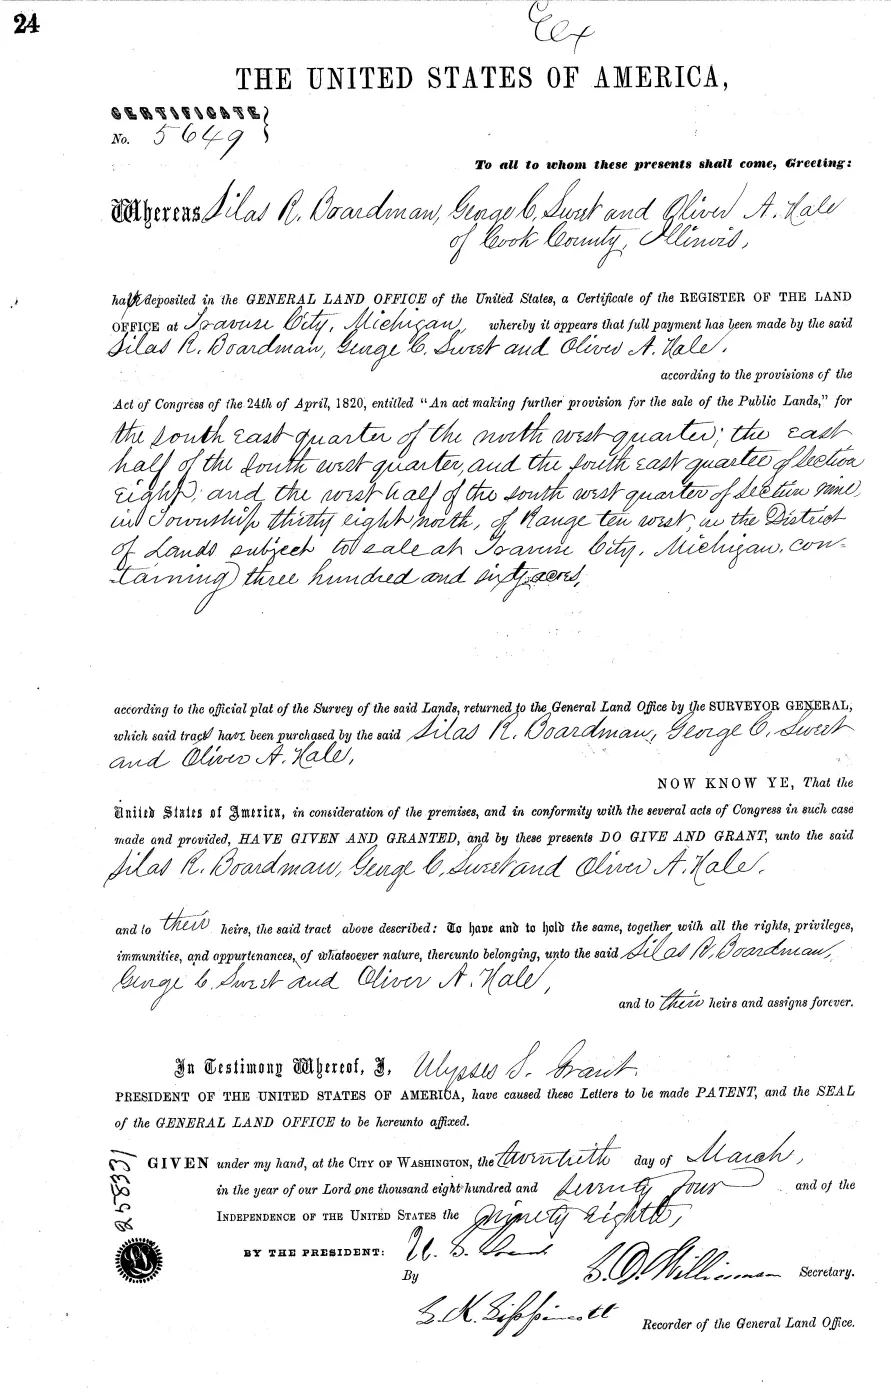 24
Ex
THE UNITED STATES OF AMERICA,
CERTIFICATE
No. 5649
To all to whom these presents shall come, Greeting:
Whereas Silas R. Boardman, George C. Sweet and Oliver A. Hale
of Cook County, Illinois,
have deposited in the GENERAL LAND OFFICE of the United States, a Certificate of the REGISTER OF THE LAND
OFFICE at Traverse City, Michigan, whereby it appears that full payment has been made by the said
Silas R. Boardman, George C. Sweet and Oliver A. Hale.
according to the provisions of the
Act of Congress of the 24th of April, 1820, entitled "An act making further provision for the sale of the Public Lands," for
the south east quarter of the north west quarter; the east
half of the south west quarter, and the south east quarter of Section
Eight, and the west half of the south west quarter of Section nine,
in Township thirty eight north, of Range ten west, in the District
of Lands subject to sale at Traverse City, Michigan, con-
taining three hundred and sixty acres,
according to the official plat of the Survey of the said Lands, returned to the General Land Office by the SURVEYOR GENERAL,
which said tract have been purchased by the said Silas R. Boardman, George C. Sweet
and Oliver A. Hale,
NOW KNOW YE, That the
United States of America, in consideration of the premises, and in conformity with the several acts of Congress in such case
made and provided, HAVE GIVEN AND GRANTED, and by these presents DO GIVE AND GRANT, unto the said
Silas R. Boardman, George C. Sweet and Oliver A. Hale.
and to their heirs, the said tract above described: To have and to hold the same, together with all the rights, privileges,
immunities, and appurtenances, of whatsoever nature, thereunto belonging, unto the said Silas R. Boardman,
George C. Sweet and Oliver A. Hale,
and to their heirs and assigns forever.
In Testimony Whereof, I, Ulysses S. Grant,
PRESIDENT OF THE UNITED STATES OF AMERICA, have caused these Letters to be made PATENT, and the SEAL
of the GENERAL LAND OFFICE to be hereunto affixed.
GIVEN under my hand, at the CITY OF WASHINGTON, the twentieth day of March,
in the year of our Lord one thousand eight hundred and seventy four and of the
INDEPENDENCE OF THE UNITED STATES the ninety eighth,
258331
BY THE PRESIDENT: U. S. Grant
By S. D. Williamson Secretary.
L. K. Lippincott
Recorder of the General Land Office.